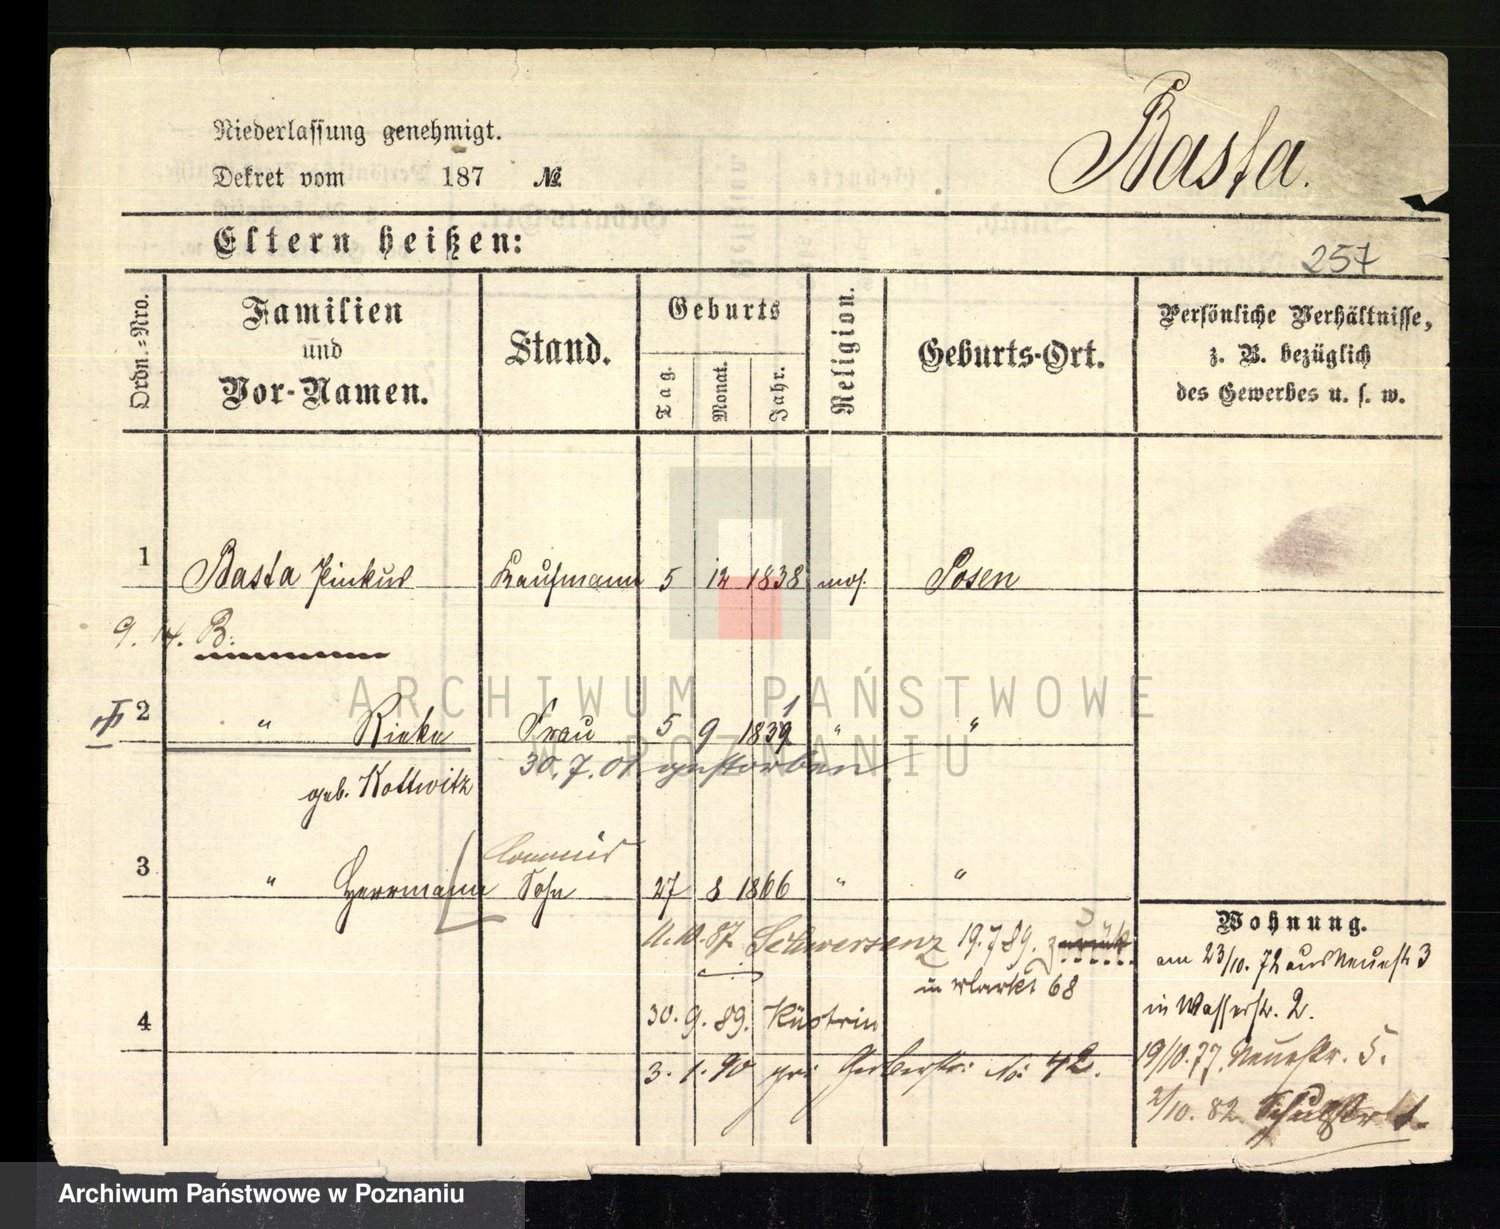 Niederlassung genehmigt.
Basta.
Dekret vom 187 №
Eltern heißen:
257
Ordn.=Nro.
Familien
und
Vor-Namen.
Stand.
Geburts
Tag.
Monat.
Jahr.
Religion.
Geburts-Ort.
Persönliche Verhältnisse,
z. B. bezüglich
des Gewerbes u. s. w.
1 Basta Pinkus Kaufmann 5 12 1838 mos. Posen
9. 14. B.
ARCHIWUM PAŃSTWOWE
W POZNANIU
2 " Rieke Frau 5 9 1839 1 " "
30.7.01 gestorben
geb. Kottwitz
Commis
3 " Herrmann Sohn 27 8 1866 " "
Wohnung.
11.10.87. Schwersenz 19.7.89. zurück
am 23/10. 72 aus Neuestr 3
in Markt 68
in Wasserstr. 2.
4
30.9.89. Küstrin
19/10.77. Neuestr. 5.
3.1.90 Gerberstr: No: 42.
2/10. 82
Archiwum Państwowe w Poznaniu